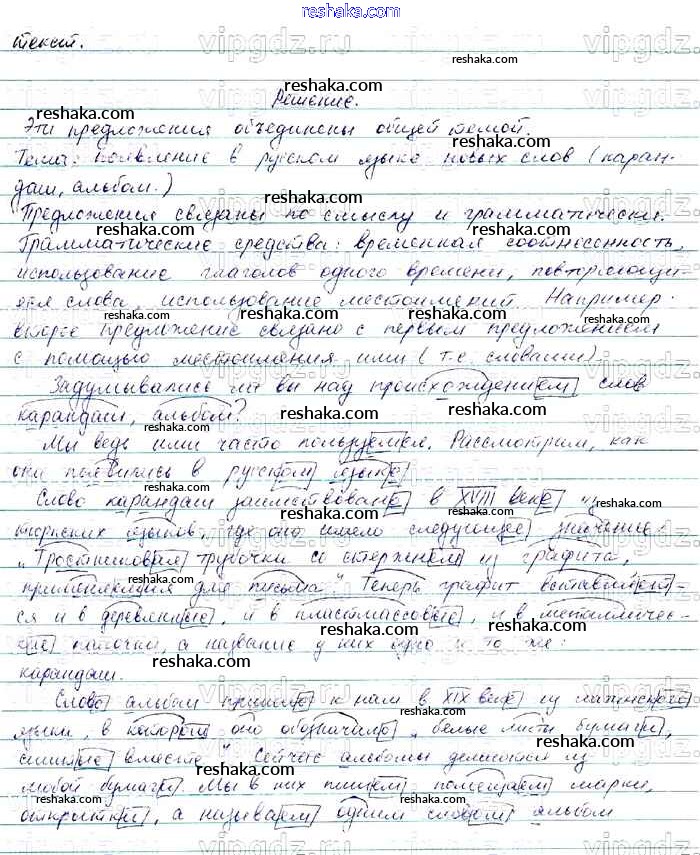 reshaka.com
текст.
Решение.
Эти предложения объединены общей темой.
Тема: появление в русском языке новых слов (каран-
даш, альбом.)
Предложения связаны по смыслу и грамматически.
Грамматические средства: временная соотнесенность,
использование глаголов одного времени, повторяющи-
еся слова, использование местоимений. Например:
второе предложение связано с первым предложением
с помощью местоимения ими (т.е. словами).
Задумывались ли вы над происхождением слов
карандаш, альбом?
Мы ведь ими часто пользуемся. Рассмотрим, как
они появились в русском языке
Слово карандаш заимствовано в XVIII веке из
тюркских языков, где оно имело следующее значение:
"Тростниковая трубочка со стержнем из графита,
для письма". Теперь графит вставляет-
ся и в деревянные, и в пластмассовые, и в металличес-
кие палочки, а название у них одно и то же:
карандаш.
Слово альбом пришло к нам в XIX веке из латинского
языка, в котором оно обозначало "белые листы бумаги,
сшитые вместе". Сейчас альбомы делаются из
любой бумаги. Мы в них пишем, помещаем марки,
открытки, а называем одним словом альбом